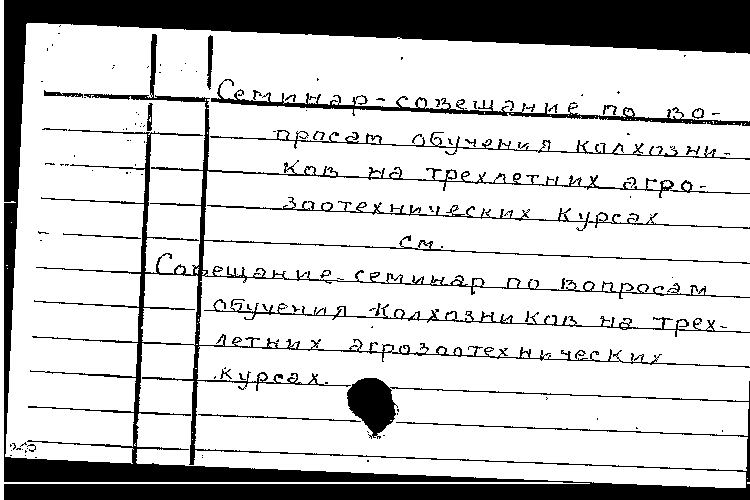 Семинар-совещание по во-
просам обучения колхозни-
ков на трехлетних агро-
зоотехнических курсах
см.
Совещание-семинар по вопросам
обучения колхозников на трех-
летних агрозоотехнических
курсах.